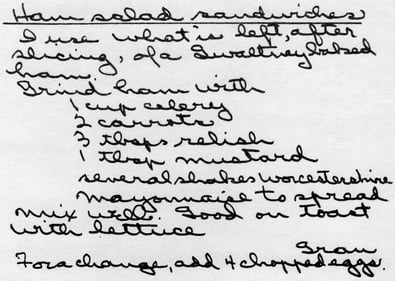 Ham salad sandwiches
I use what is left, after
slicing, of a Gwaltney baked
ham.
Grind ham with
1 cup celery
2 carrots
3 tbsps relish
1 tbsp mustard
several shakes worcestershire
mayonnaise to spread
Mix well. Good on toast
with lettuce
Gran
For a change, add 4 chopped eggs.